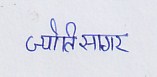 ज्योतिसागर